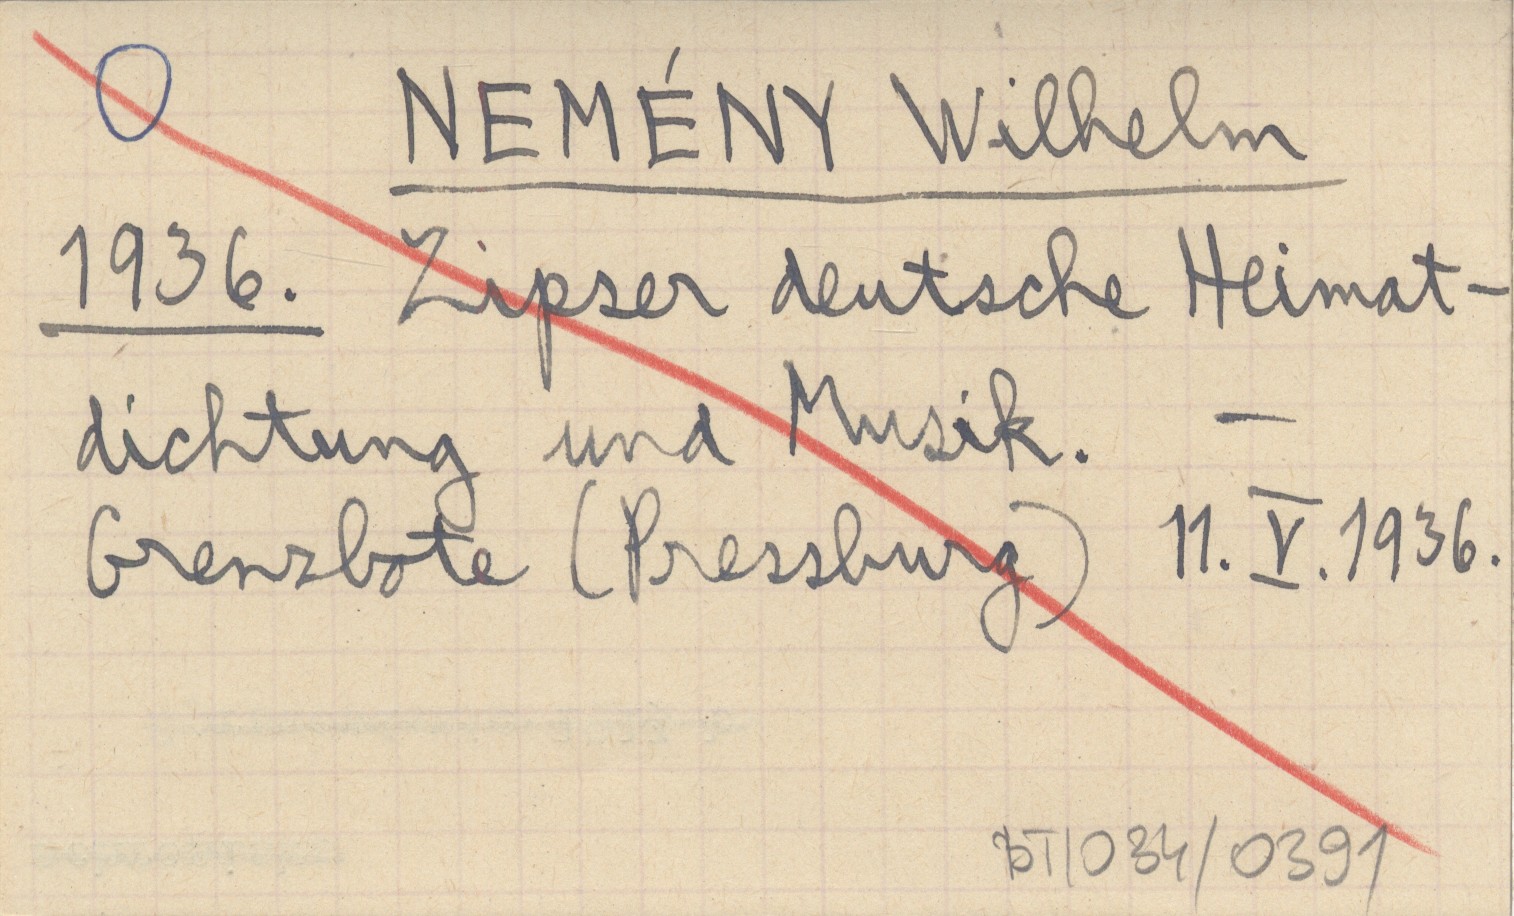 NEMÉNY Wilhelm
1936. Zipser deutsche Heimat-
dichtung und Musik. —
Grenzbote (Pressburg) 11. V. 1936.
BT/034/0391